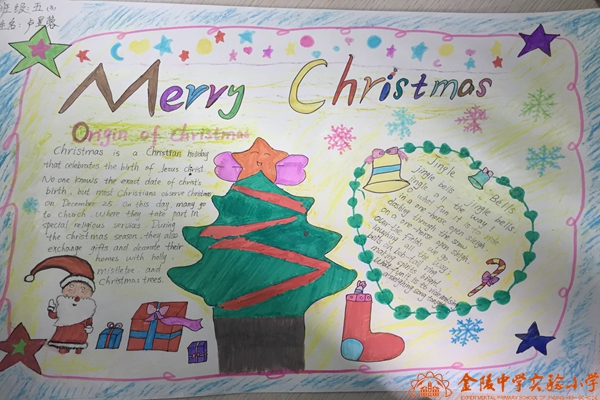 班级:五(3)
姓名:
Merry Christmas
Origin of Christmas
Christmas is a Christian holiday
that celebrates the birth of Jesus Christ.
No one knows the exact date of Christ's
birth, but most Christians observe Christmas
on December 25. On this day, many go
to church, where they take part in
special religious services. During
the Christmas season, they also
exchange gifts and decorate their
homes with holly
mistletoe and
Christmas trees.
Jingle Bells
Jingle bells jingle bells
Jingle all the way
what fun it is to ride
In a one-horse open sleigh
dashing through the snow
on a one-horse open sleigh
over the fields we go
laughing all the way
bells on bob-tail ring
making spirits bright
what fun it is to ride and sing
a sleighing song tonight
金陵中学实验小学
EXPERIMENTAL PRIMARY SCHOOL OF JINLING HIGH SCHOOL